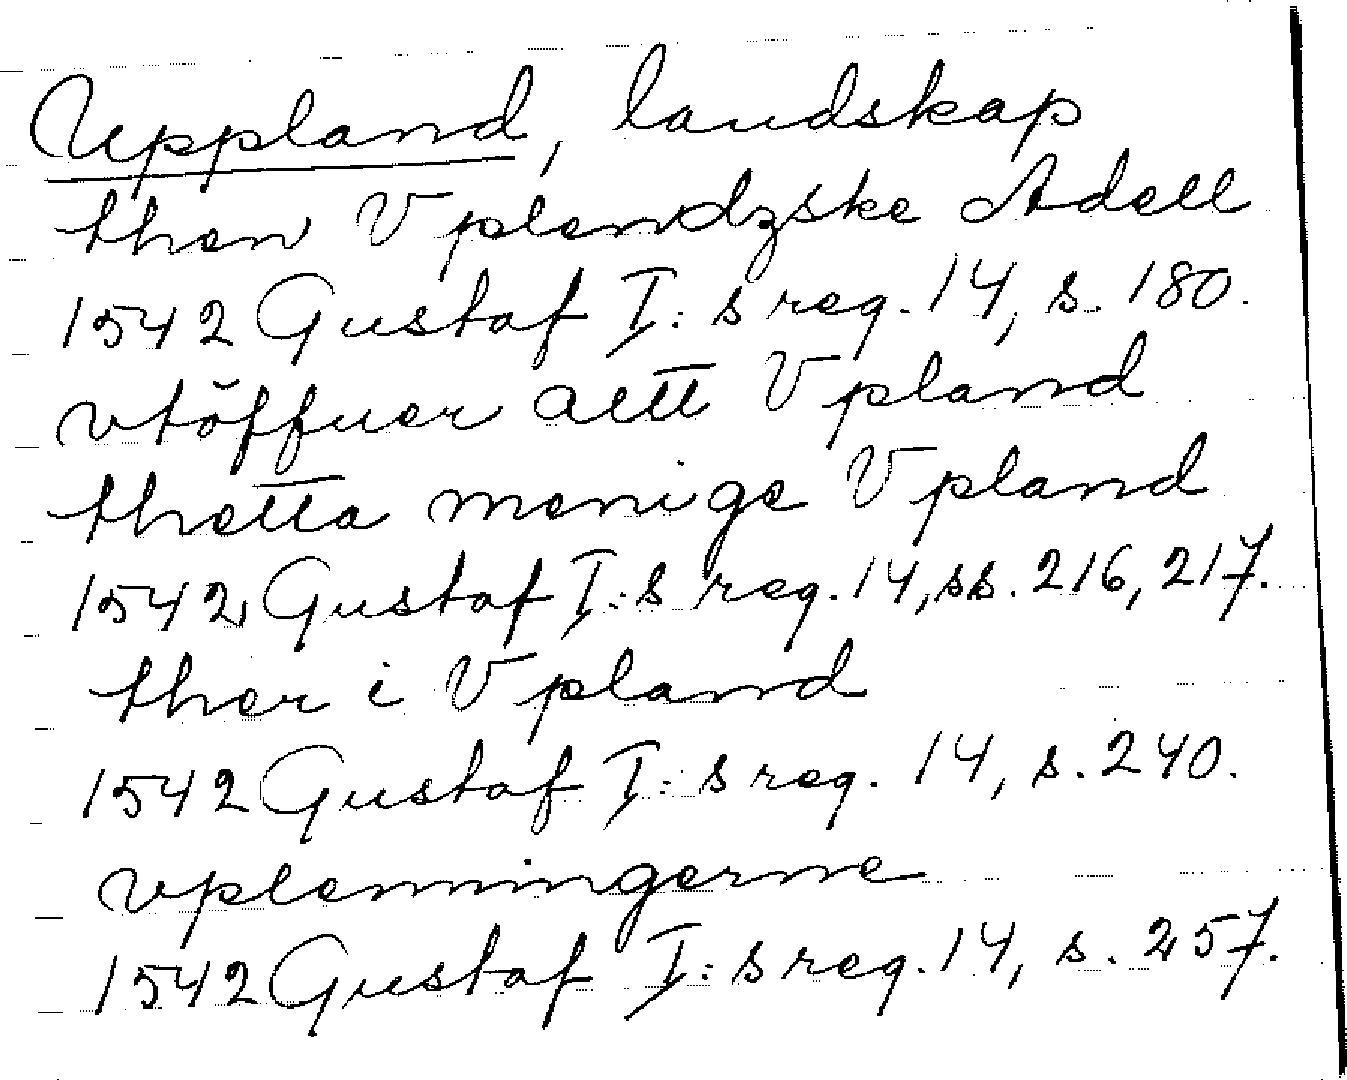 Uppland, landskap
then Vplendzske Adell
1542 Gustaf I:s reg. 14, s. 180.
vtöffuer altt Vpland
thetta menige Vpland
1542 Gustaf I:s reg. 14, ss. 216, 217.
ther i Vpland
1542 Gustaf I:s reg. 14, s. 240.
vplenningerne
1542 Gustaf I:s reg. 14, s. 257.